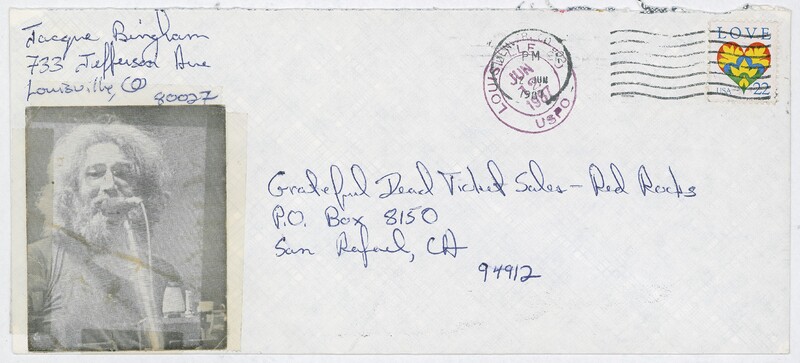 Jacque Bingham
733 Jefferson Ave
Louisville, CO
80027
LOVE
USA 22
LOUISVILLE
PM
JUN
1987
USPO
Grateful Dead Ticket Sales - Red Rocks
P.O. Box 8150
San Rafael, CA
94912